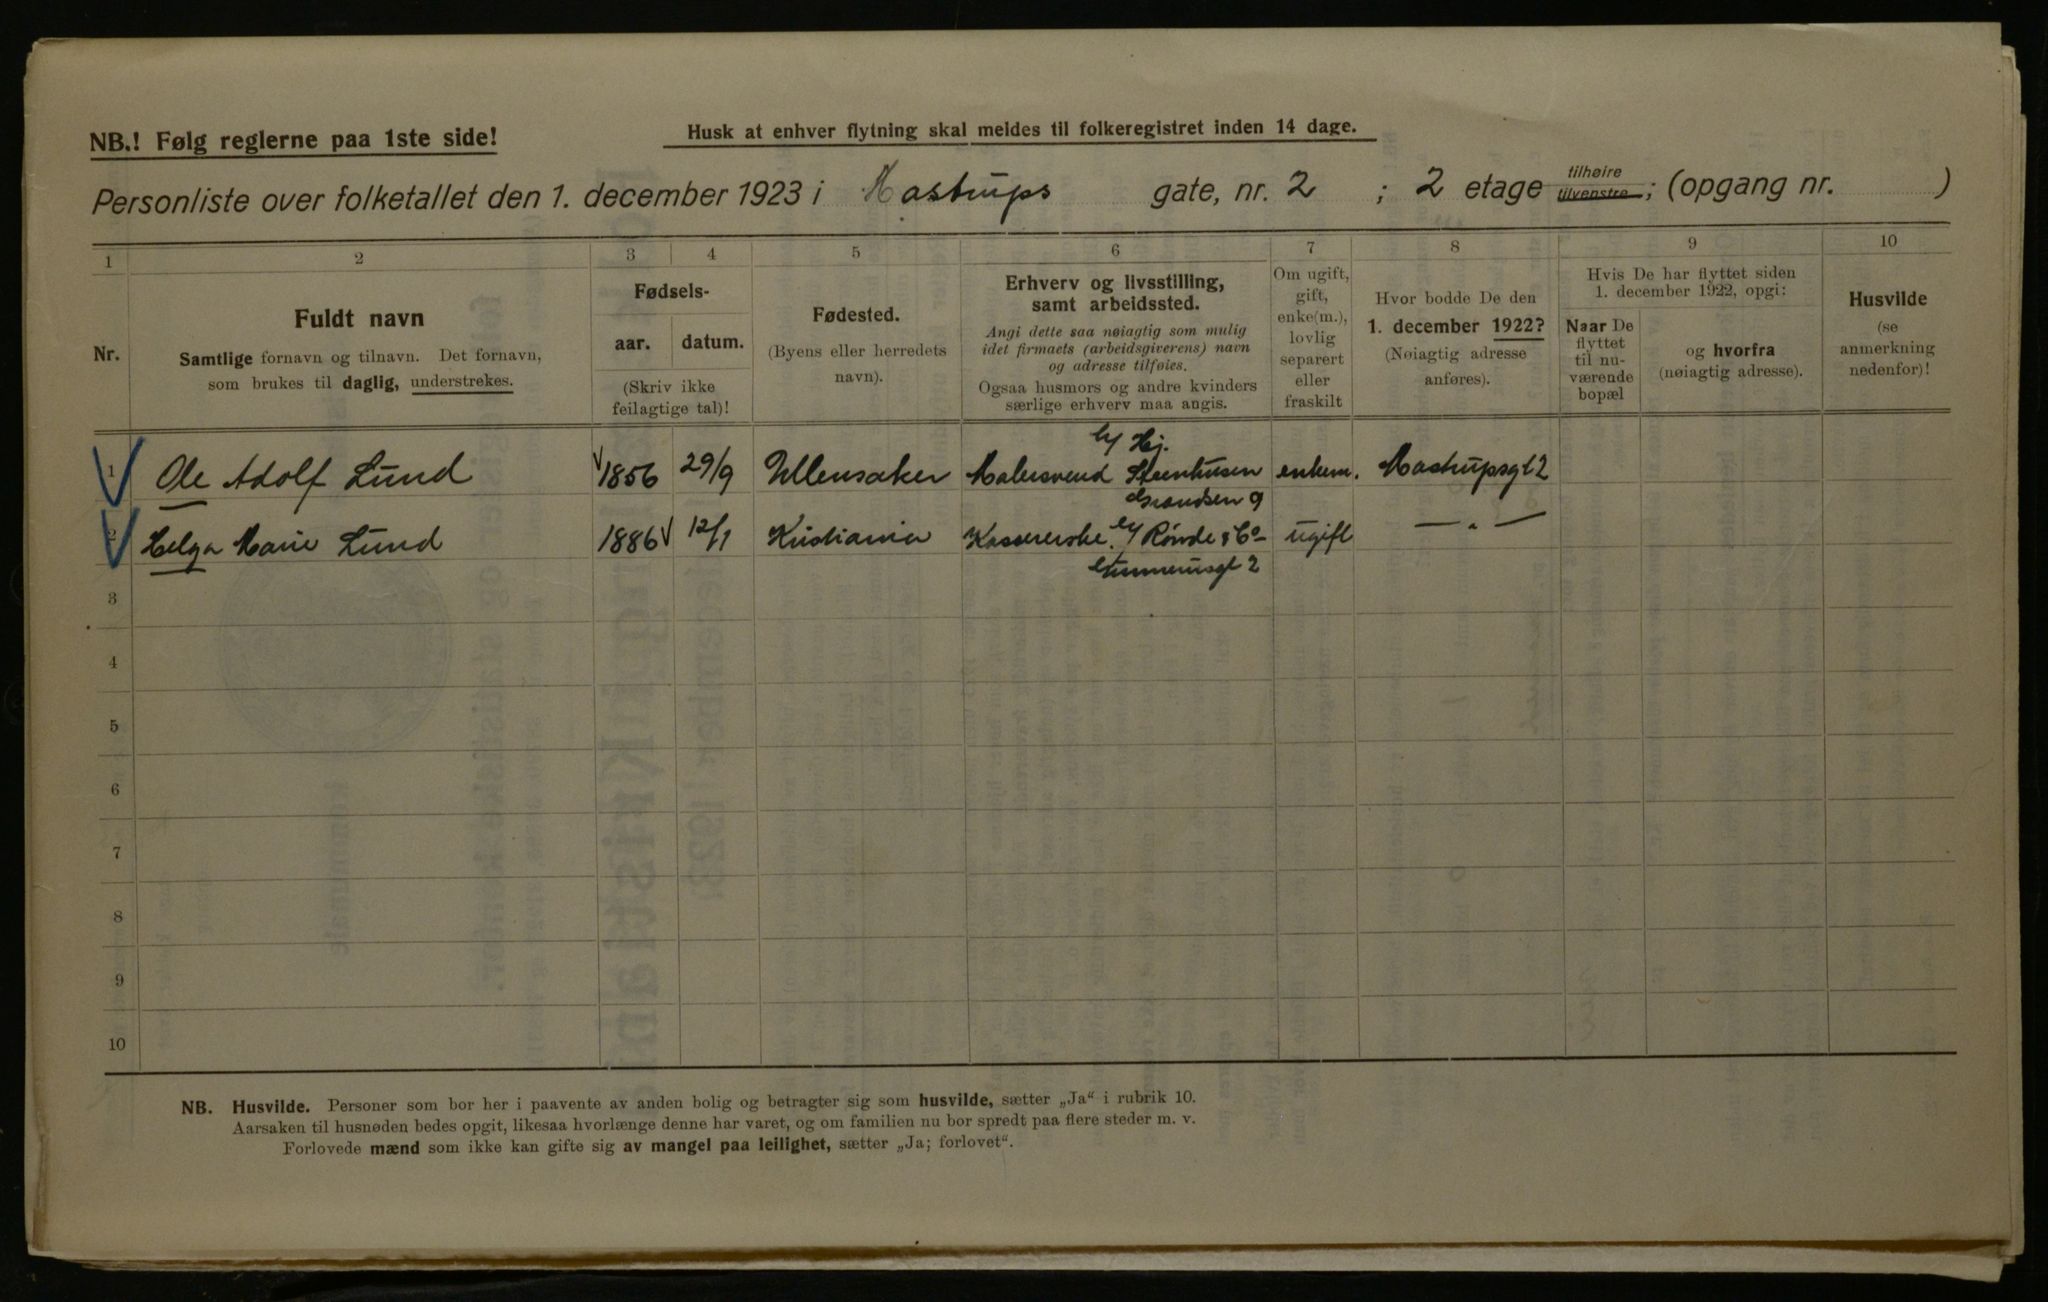 NB.! Følg reglerne paa 1ste side!
Husk at enhver flytning skal meldes til folkeregistret inden 14 dage.
Personliste over folketallet den 1. december 1923 i Mastrups gate, nr. 2 ; 2 etage tilhøire tilvenstre ; (opgang nr. )
1 2 3 4 5 6 7 8 9 10
Nr.
Fuldt navn
Samtlige fornavn og tilnavn. Det fornavn,
som brukes til daglig, understrekes.
Fødsels-
aar. datum.
(Skriv ikke
feilagtige tal)!
Fødested.
(Byens eller herredets
navn).
Erhverv og livsstilling,
samt arbeidssted.
Angi dette saa nøiagtig som mulig
idet firmaets (arbeidsgiverens) navn
og adresse tilføies.
Ogsaa husmors og andre kvinders
særlige erhverv maa angis.
Om ugift,
gift,
enke(m.),
lovlig
separert
eller
fraskilt
Hvor bodde De den
1. december 1922?
(Nøiagtig adresse
anføres).
Hvis De har flyttet siden
1. december 1922, opgi:
Naar De
flyttet
til nu-
værende
bopæl
og hvorfra
(nøiagtig adresse).
Husvilde
(se
anmerkning
nedenfor)!
1 Ole Adolf Lund 1856 29/9 Ullensaker Malersvend Hj. Steenhusen Grændsen 9 enkem. Mastrupsgt 2
2 Helga Marie Lund 1886 12/1 Kristiania Kassererske Rønde & Co Gunnerusgt 2 ugift — " —
3
4
5
6
7
8
9
10
NB. Husvilde. Personer som bor her i paavente av anden bolig og betragter sig som husvilde, sætter „Ja“ i rubrik 10.
Aarsaken til husnøden bedes opgit, likesaa hvorlænge denne har varet, og om familien nu bor spredt paa flere steder m. v.
Forlovede mænd som ikke kan gifte sig av mangel paa leilighet, sætter „Ja; forlovet“.